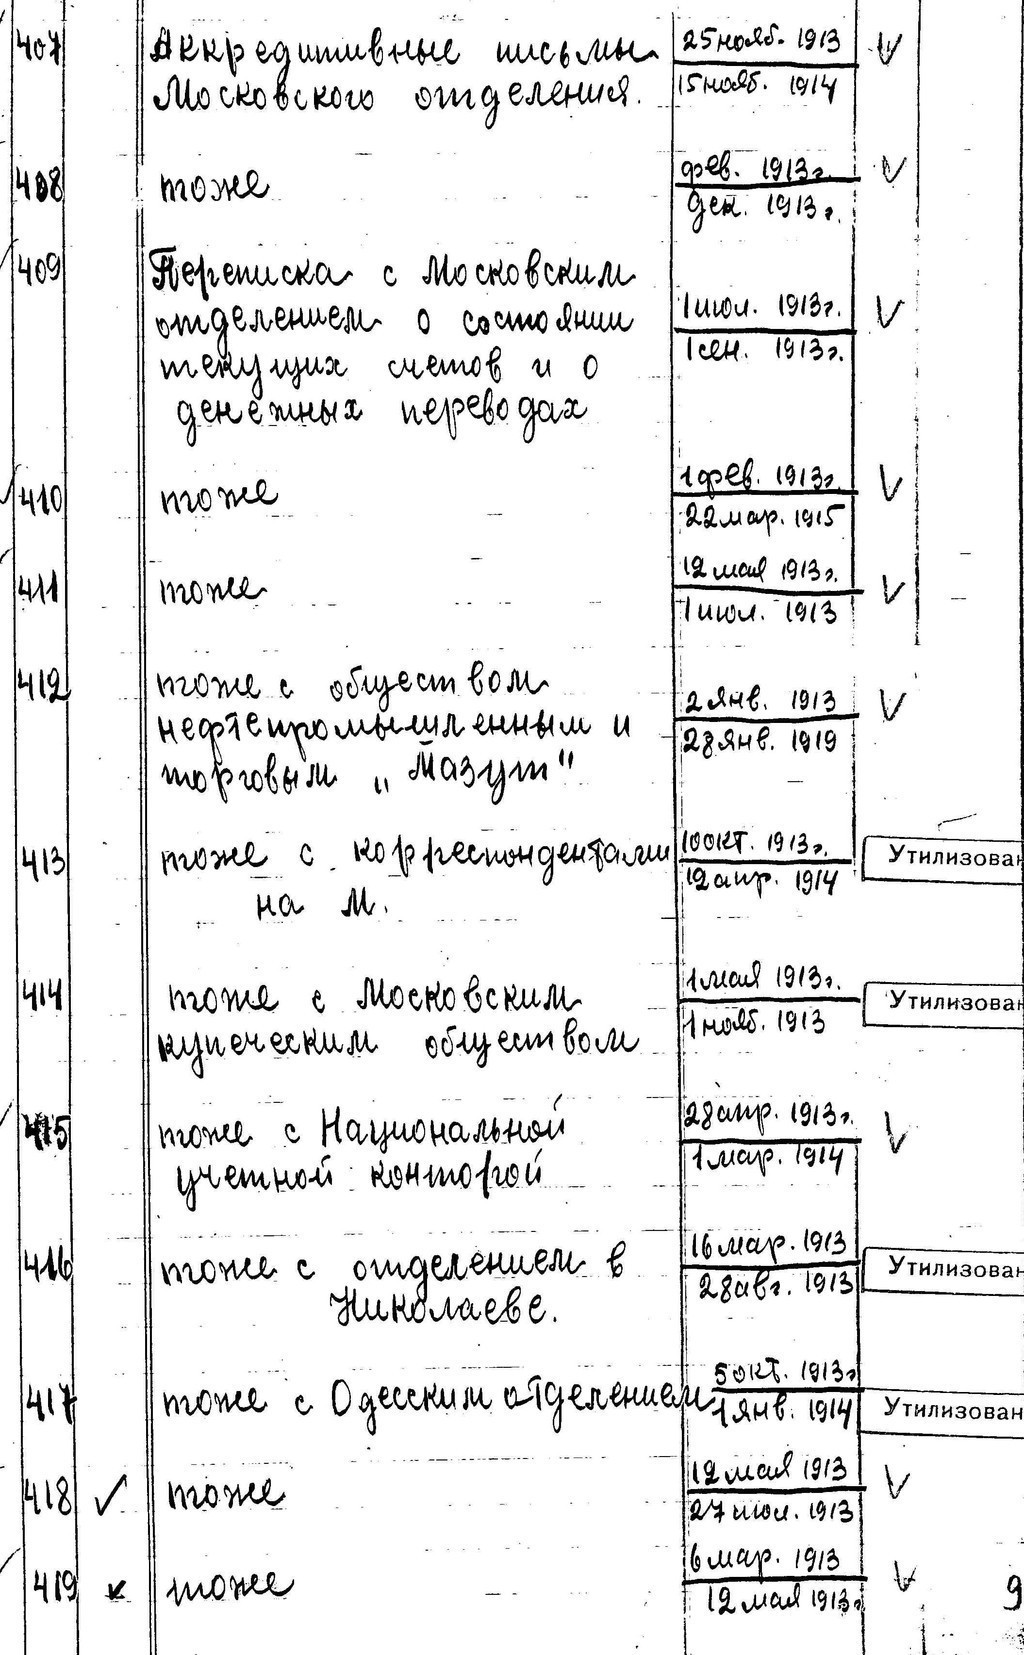 407 Аккредитивные письмы 25 нояб. 1913
Московского отделения. 15 нояб. 1914
408 тоже фев. 1913г.
дек. 1913г.
409 Переписка с Московским
отделением о состоянии 1 июл. 1913г.
текущих счетов и о 1 сен. 1913г.
денежных переводах
410 тоже 1 фев. 1913г.
22 мар. 1915
411 тоже 12 мая 1913г.
1 июл. 1913
412 тоже с обществом
нефтепромышленным и 2 янв. 1913
торговым „Мазут" 28 янв. 1919
413 тоже с корреспондентами 10 окт. 1913г. Утилизован
на М. 12 апр. 1914
414 тоже с Московским 1 мая 1913г. Утилизован
купеческим обществом 1 нояб. 1913
415 тоже с Национальной 28 апр. 1913г.
учетной конторой 1 мар. 1914
416 тоже с отделением в 16 мар. 1913 Утилизован
Николаеве. 28 авг. 1913
417 тоже с Одесским отделением 5 окт. 1913г Утилизован
1 янв. 1914
418 тоже 12 мая 1913
27 июл. 1913
419 тоже 6 мар. 1913
12 мая 1913г
9